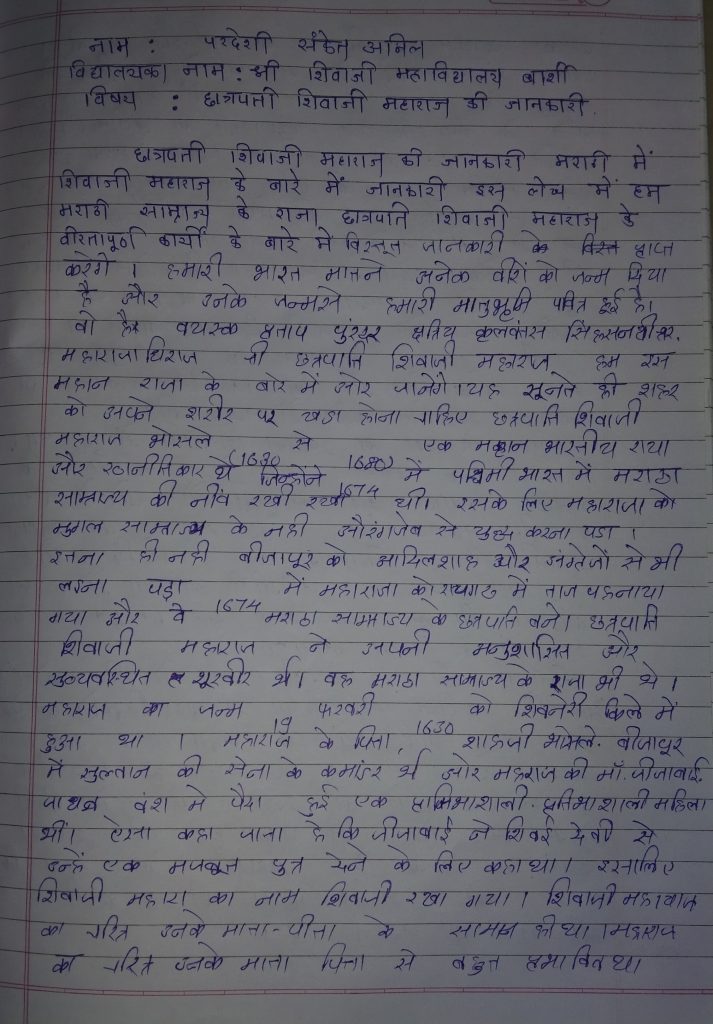 नाम : परदेशी संकेत अनिल
विद्यालयका नाम : श्री शिवाजी महाविद्यालय बार्शी
विषय : छात्रपती शिवाजी महाराज की जानकारी
छात्रपती शिवाजी महाराज की जानकारी मराठी में
शिवाजी महाराज के बारे में जानकारी इस लेख में हम
मराठा साम्राज्य के राजा छात्रपति शिवाजी महाराज के
वीरतापूर्ण कार्यों के बारे में विस्तृत जानकारी के प्राप्त
करेंगे । हमारी भारत मातने अनेक वीरों को जन्म दिया
है और उनके जन्मसे हमारी मातृभूमि पवित्र हुई है।
वो है। वयस्क प्रताप पुरंदर क्षत्रिय कुलवंतस सिंहसनधीश्वर.
महाराजाधिराज श्री छत्रपति शिवाजी महाराज हम इस
महान राजा के बारे में और जानेंगे। यह सूनते ही शहर
को अपने शरीर पर खडा होना चाहिए छत्रपति शिवाजी
महाराज भोसले से एक महान भारतीय राया
और रणनीतिकार थे (1630 जिन्होंने 1680) में पश्चिमी भारत में मराठा
साम्राज्य की नींव रखी रखी 1674 थी। इसके लिए महाराजा को
मुगल साम्राज्य के नही औरंगजेब से युध्द करना पडा ।
इतना ही नही बीजापूर को आदिलशाह और अंग्रेजों से भी
लडना पड़ा में महाराजा को रायगढ में ताज पहनाया
गया और वे 1674 मराठा साम्राज्य के छत्रपति बने। छत्रपति
शिवाजी महाराज ने अपनी अनुशासित और
सुव्यवस्थित शूरवीर थे। वह मराठा साम्राज्य के राजा भी थे ।
महाराज का जन्म 19 फरवरी 1630 को शिवनेरी किले में
हुआ था । महाराज के पिता, शाहजी भोसले. बीजापूर
में सुल्तान की सेना के कमांडर थे और महराज की माँ. जीजाबाई
जाधव वंश मे पैदा हुई एक प्रतिभाशाली महिला
थीं। ऐसा कहा जाता है कि जीजाबाई ने शिवई देवी से
उन्हें एक मजबूत पुत्र देने के लिए कहा था । इसलिए
शिवाजी महारा का नाम शिवाजी रखा गया । शिवाजी महाराज
का चरित्र उनके माता-पीता के सामान ही था । महाराज
का चरित्र उनके माता पिता से बहुत प्रभावित था।